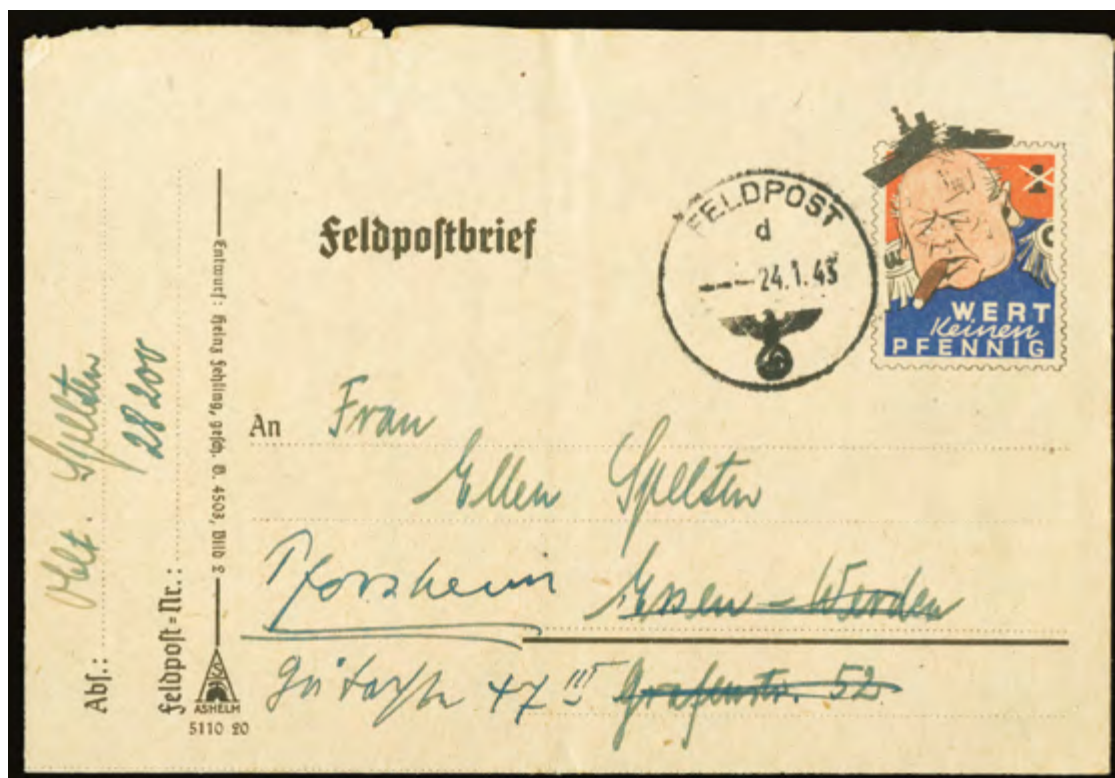 Feldpostbrief
FELDPOST
d
24.1.43
WERT
Keinen
PFENNIG
An Frau
Ellen Spelten
Pforzheim Essen-Werden
47 III Grafenstr. 52
Abs.: Oblt. Spelten
Feldpost=Nr.: 28200
Entwurf: Heinz Fehling, gesch. D. 4503, Bild 2
ASHELM
5110 20